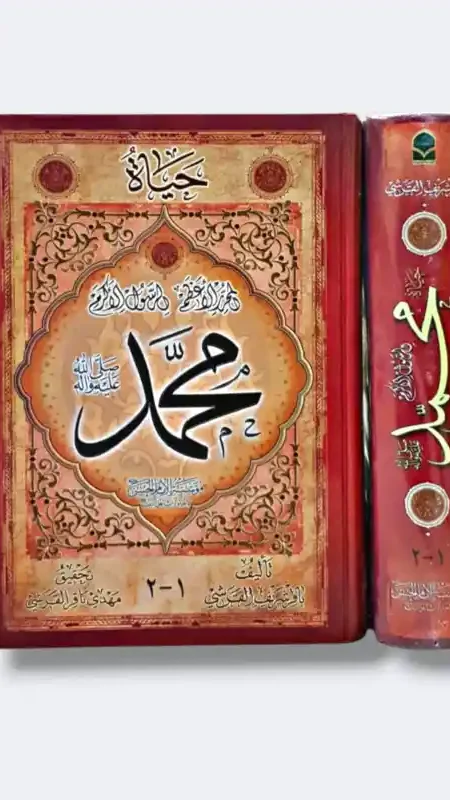 حياة
المحرر الأعظم الرسول الأكرم
محمد
صلى الله
عليه وآله
تأليف
باقر شريف القرشي
١-٢
تحقيق
مهدي باقر القرشي
شريف القرشي
حياة
الرسول الأكرم
محمد
١-٢